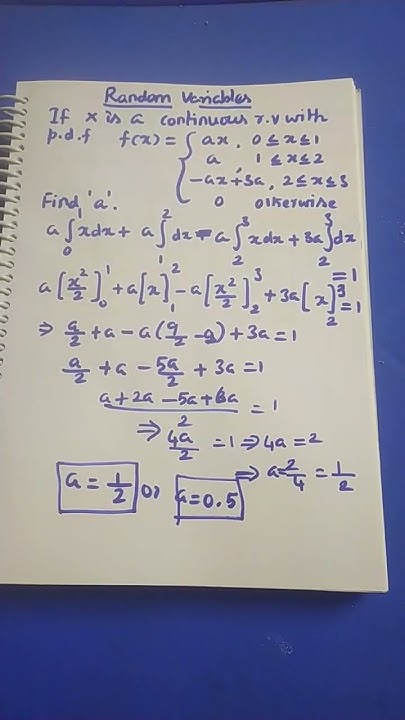 Random Variables
If x is a continuous r.v with
p.d.f f(x) = { ax, 0 ≤ x ≤ 1
a, 1 ≤ x ≤ 2
-ax+3a, 2 ≤ x ≤ 3
0 otherwise
Find 'a'.
a∫₀¹ xdx + a∫₁² dx - a∫₂³ xdx + 3a∫₂³ dx = 1
a[x²/2]₀¹ + a[x]₁² - a[x²/2]₂³ + 3a[x]₂³ = 1
⇒ a/2 + a - a(9/2 - 2) + 3a = 1
a/2 + a - 5a/2 + 3a = 1
(a + 2a - 5a + 6a)/2 = 1
⇒ 4a/2 = 1 ⇒ 4a = 2
⇒ a = 2/4 = 1/2
a = 1/2 or a = 0.5